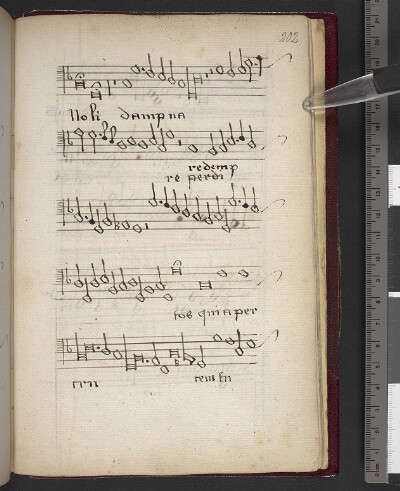 202
Noli dampna
redemp
re perdi
tos quia per
tem tu